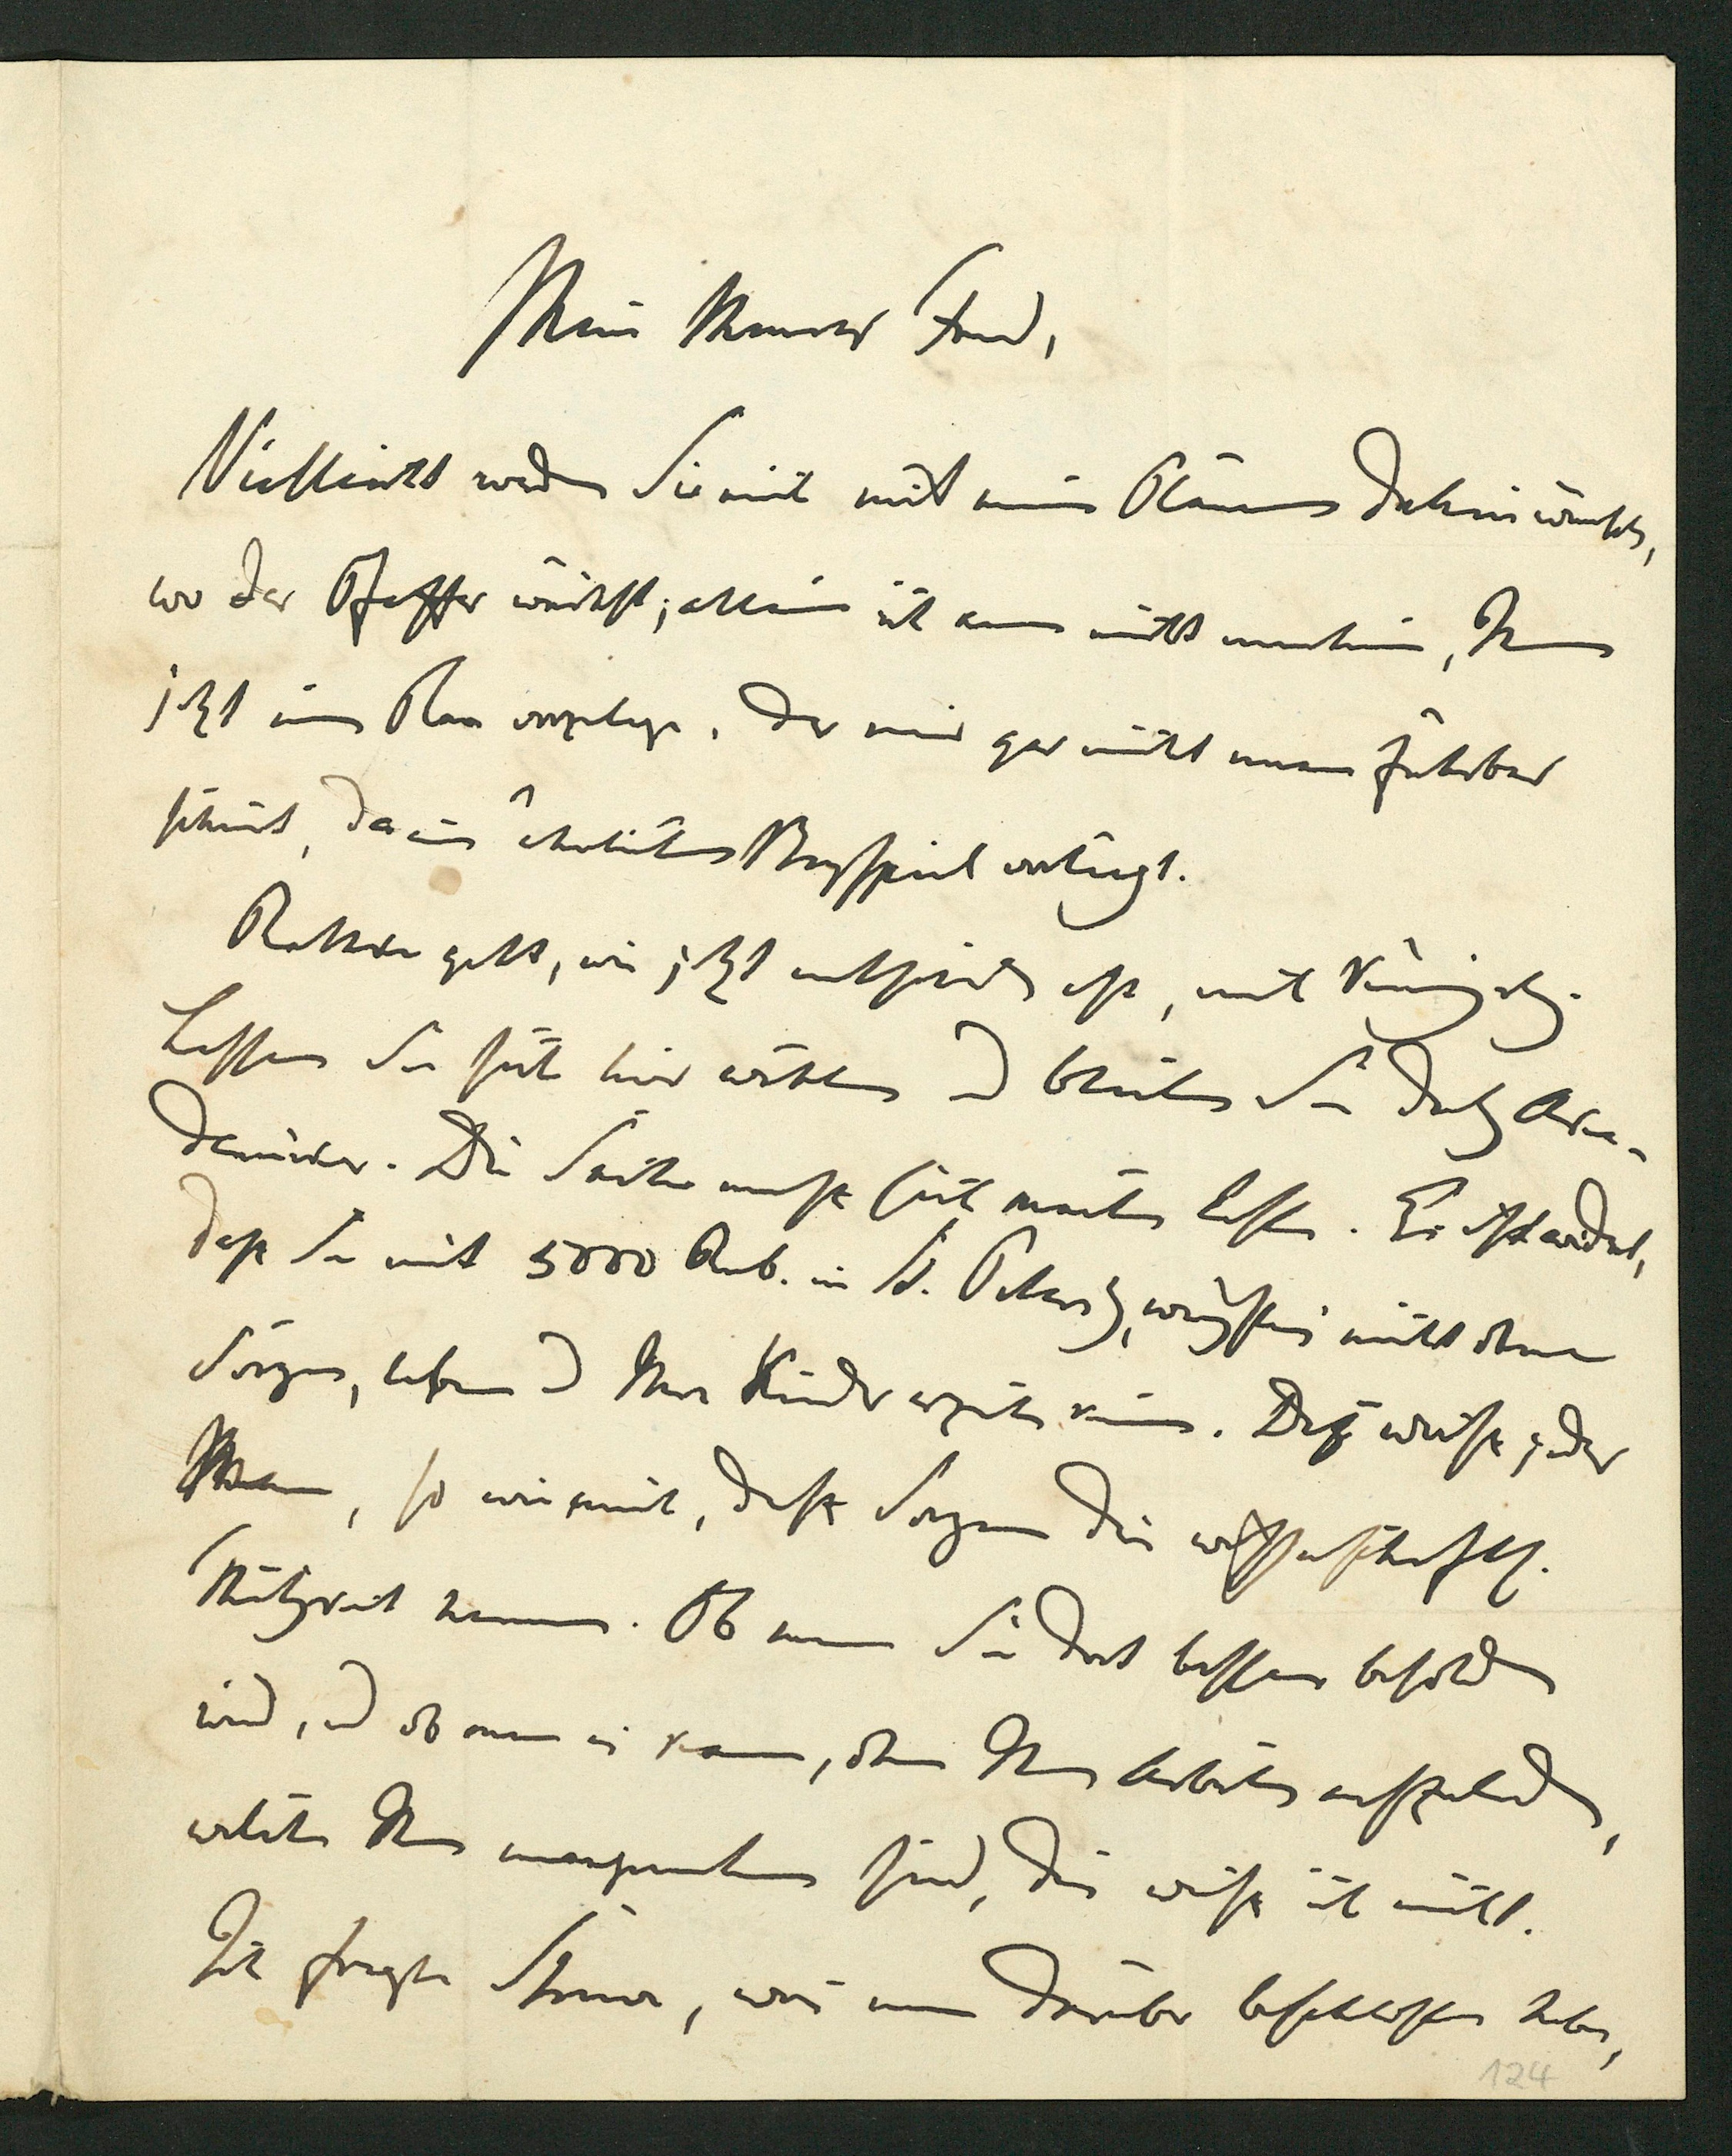 Mein theurer Freund,
Vielleicht werden Sie mich mit meinen Plänen dahin wünschen,
wo der Pfeffer wächst; allein ich kann nicht umhin, Ihnen
jetzt einen Plan vorzulegen, der mir gar nicht unausführbar
scheint, da ein ähnliches Beyspiel vorliegt.
Rathke geht, wie jetzt entschieden ist, nach Königsbg.
Lassen Sie sich hier wählen und bleiben Sie doch Aka-
demiker. Die Sache muß sich machen lassen. Es ist
daß Sie mit 5000 Rub. in St. Petersbg, wenigstens nicht ohne
Sorgen, leben und Ihre Kinder erziehen können. Dieß weiß jeder
, so wie auch, daß Sorgen die wissenschaftl.
Thätigkeit hemmen. Ob man Sie dort besser besolden
wird, und ob man es kann, ohne Ihnen Arbeiten aufzuladen,
welche Ihnen unangenehm sind, dies weiß ich nicht.
Ich fragte Struve, was man darüber beschlossen habe,
124